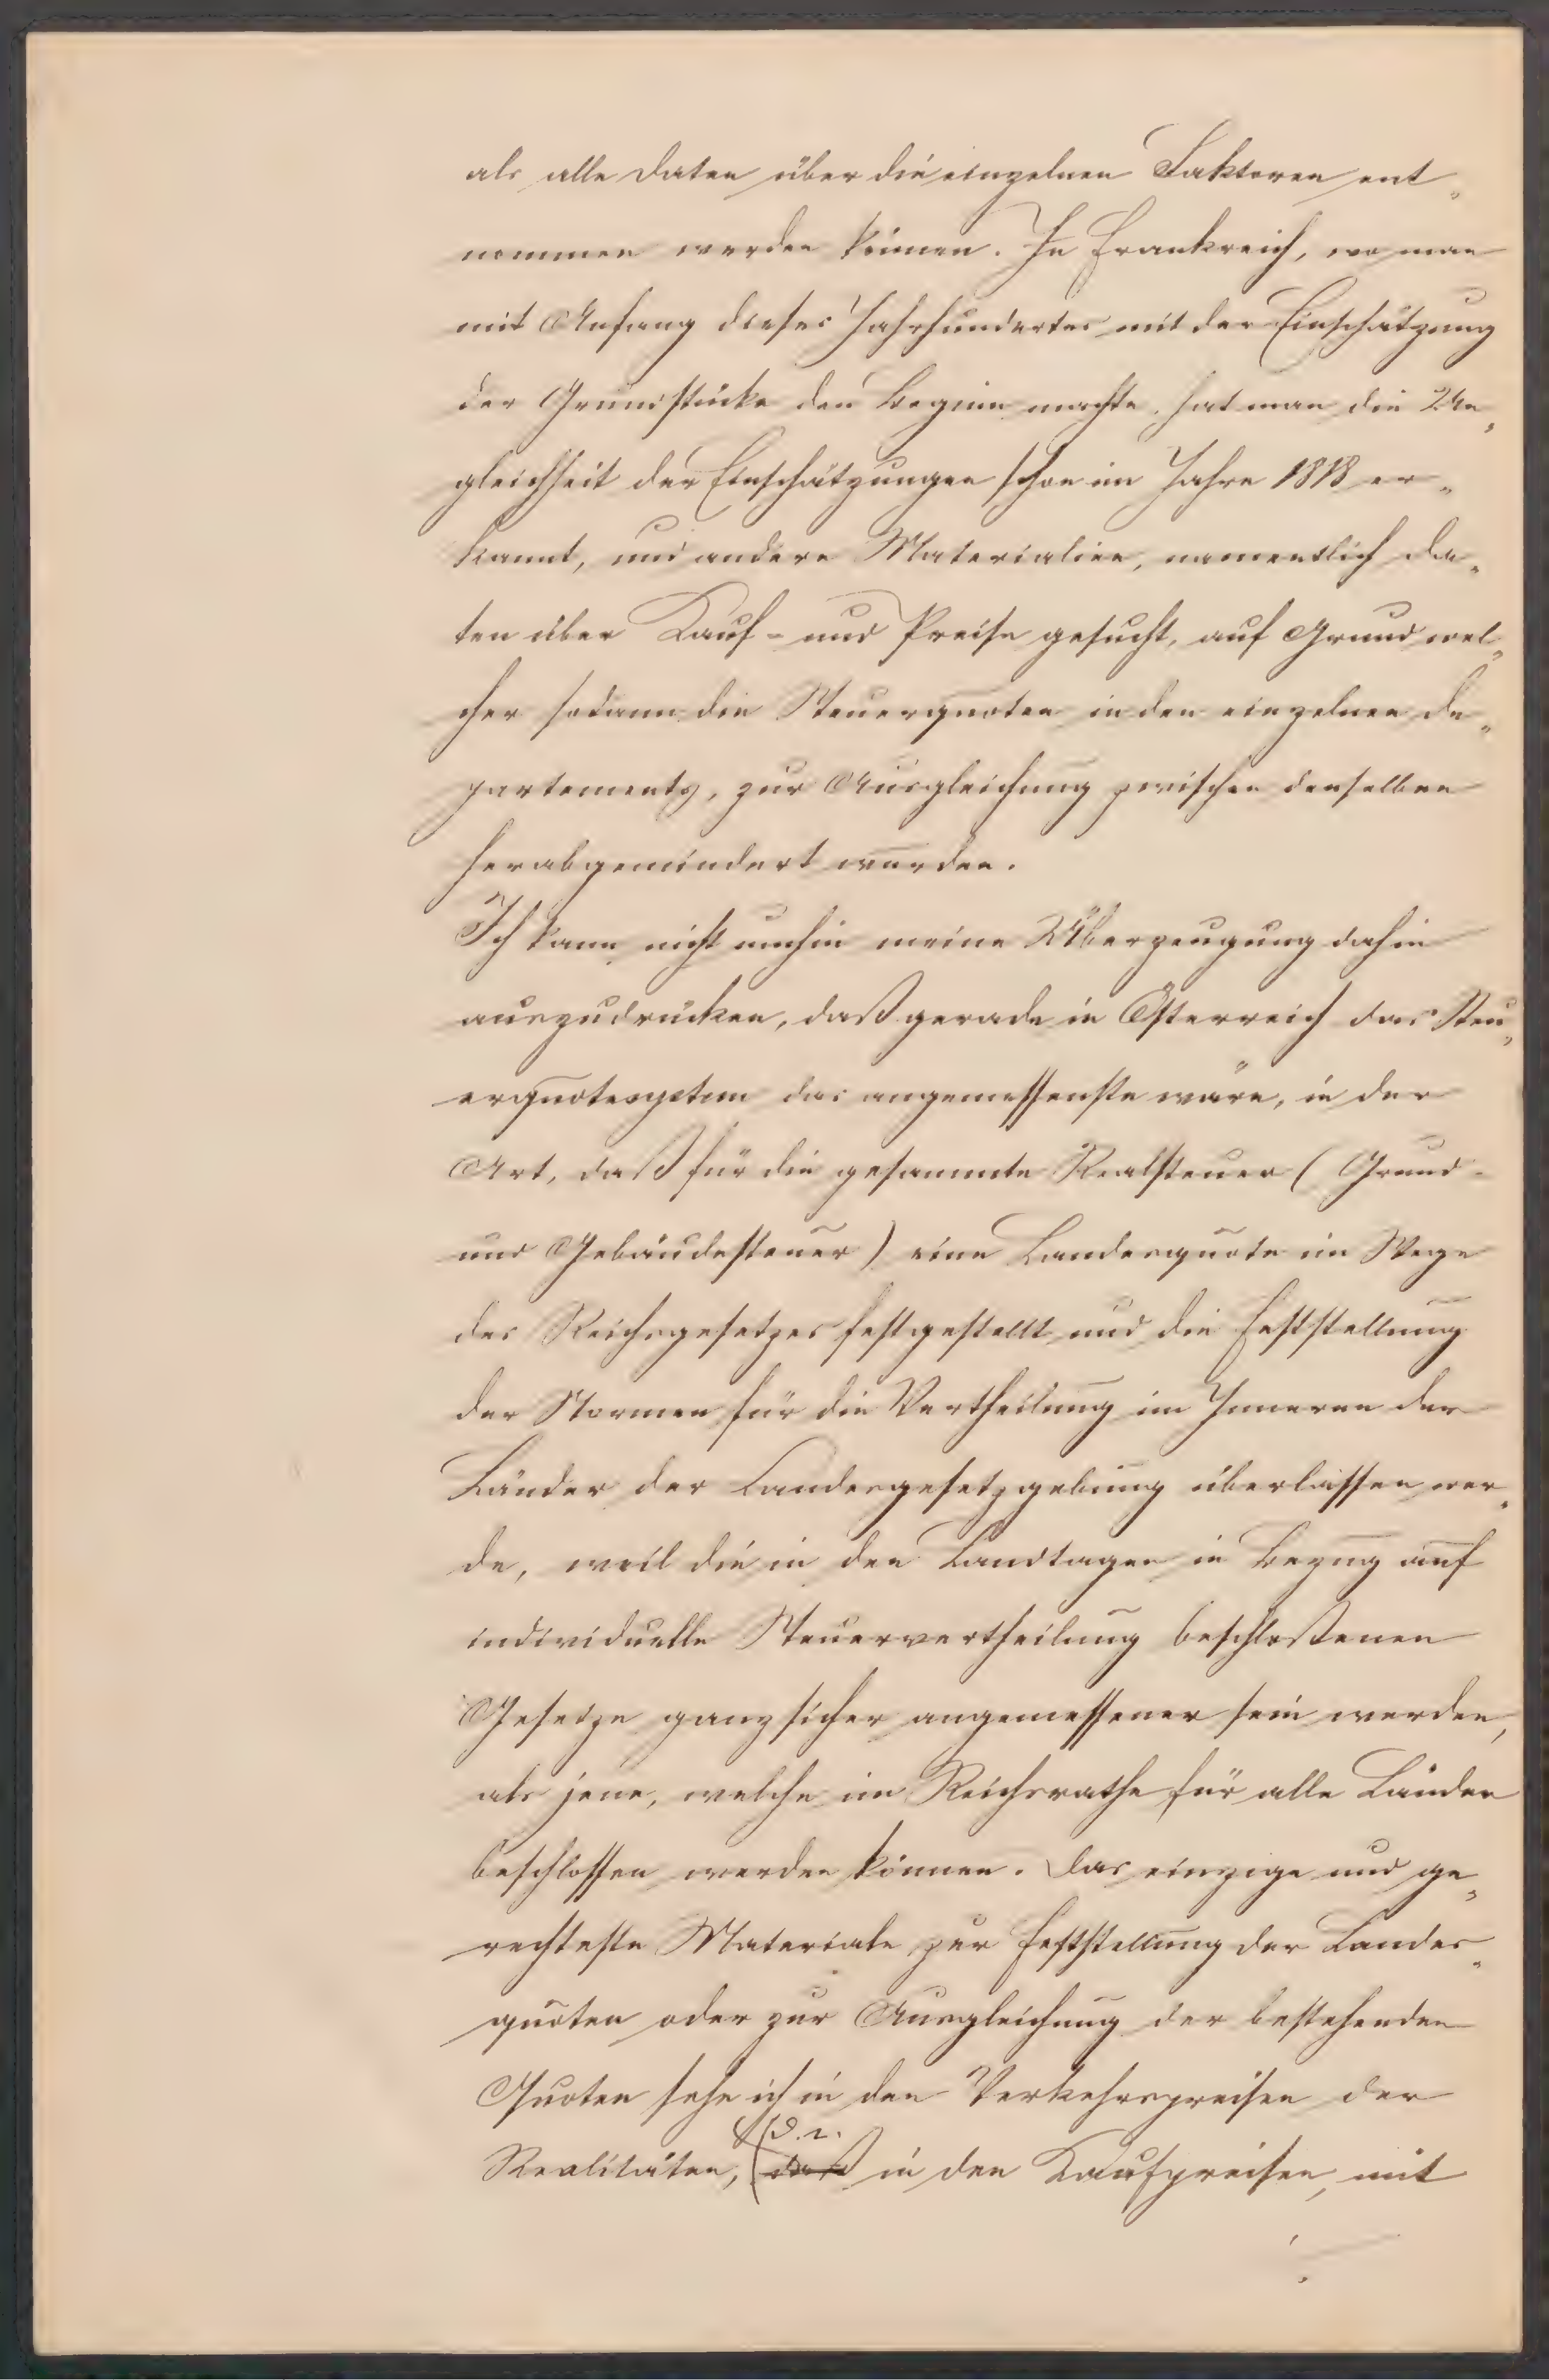 als alle Daten über die einzelnen Faktoren ent„
nommen werden können. In Frankreich, wo man
mit Anfang dieses Jahrhundertes mit der Einschätzung
der Grundstücke den Beginn machte, hat man die Un„
gleichheit der Einschätzungen schon im Jahre 1818 er„
kannt, und andere Materialien, namentlich Da„
ten über Kauf- und Preise gesucht, auf Grund wel„
cher sodann die Steuerquoten in den einzelnen De„
partements, zur Ausgleichung zwischen denselben
herabgemindert wurden.
Ich kann nicht umhin meine Überzeugung dahin
auszudrücken, daß gerade in Österreich das Steu„
erquotesystem das angemessenste wäre, in der
Art, daß für die gesammte Realsteuer (Grund-
und Gebäudesteuer) eine Landesquote im Wege
des Reichsgesetzes festgestellt und die Feststellung
der Normen für die Vertheilung im Inneren der
Länder der Landesgesetzgebung überlassen wer„
de, weil die in den Landtagen in Bezug auf
individuelle Steuervertheilung beschloßenen
Gesetze ganz sicher angemessener sein werden,
als jene, welche im Reichsrathe für alle Länder
beschlossen werden können. Das einzige und ge„
rechteste Materiale zur Feststellung der Landes„
quoten oder zur Ausgleichung der bestehenden
Quoten sehe ich in den Verkehrspreisen der
d. i.
Realitäten, daß in den Kaufpreisen, mit